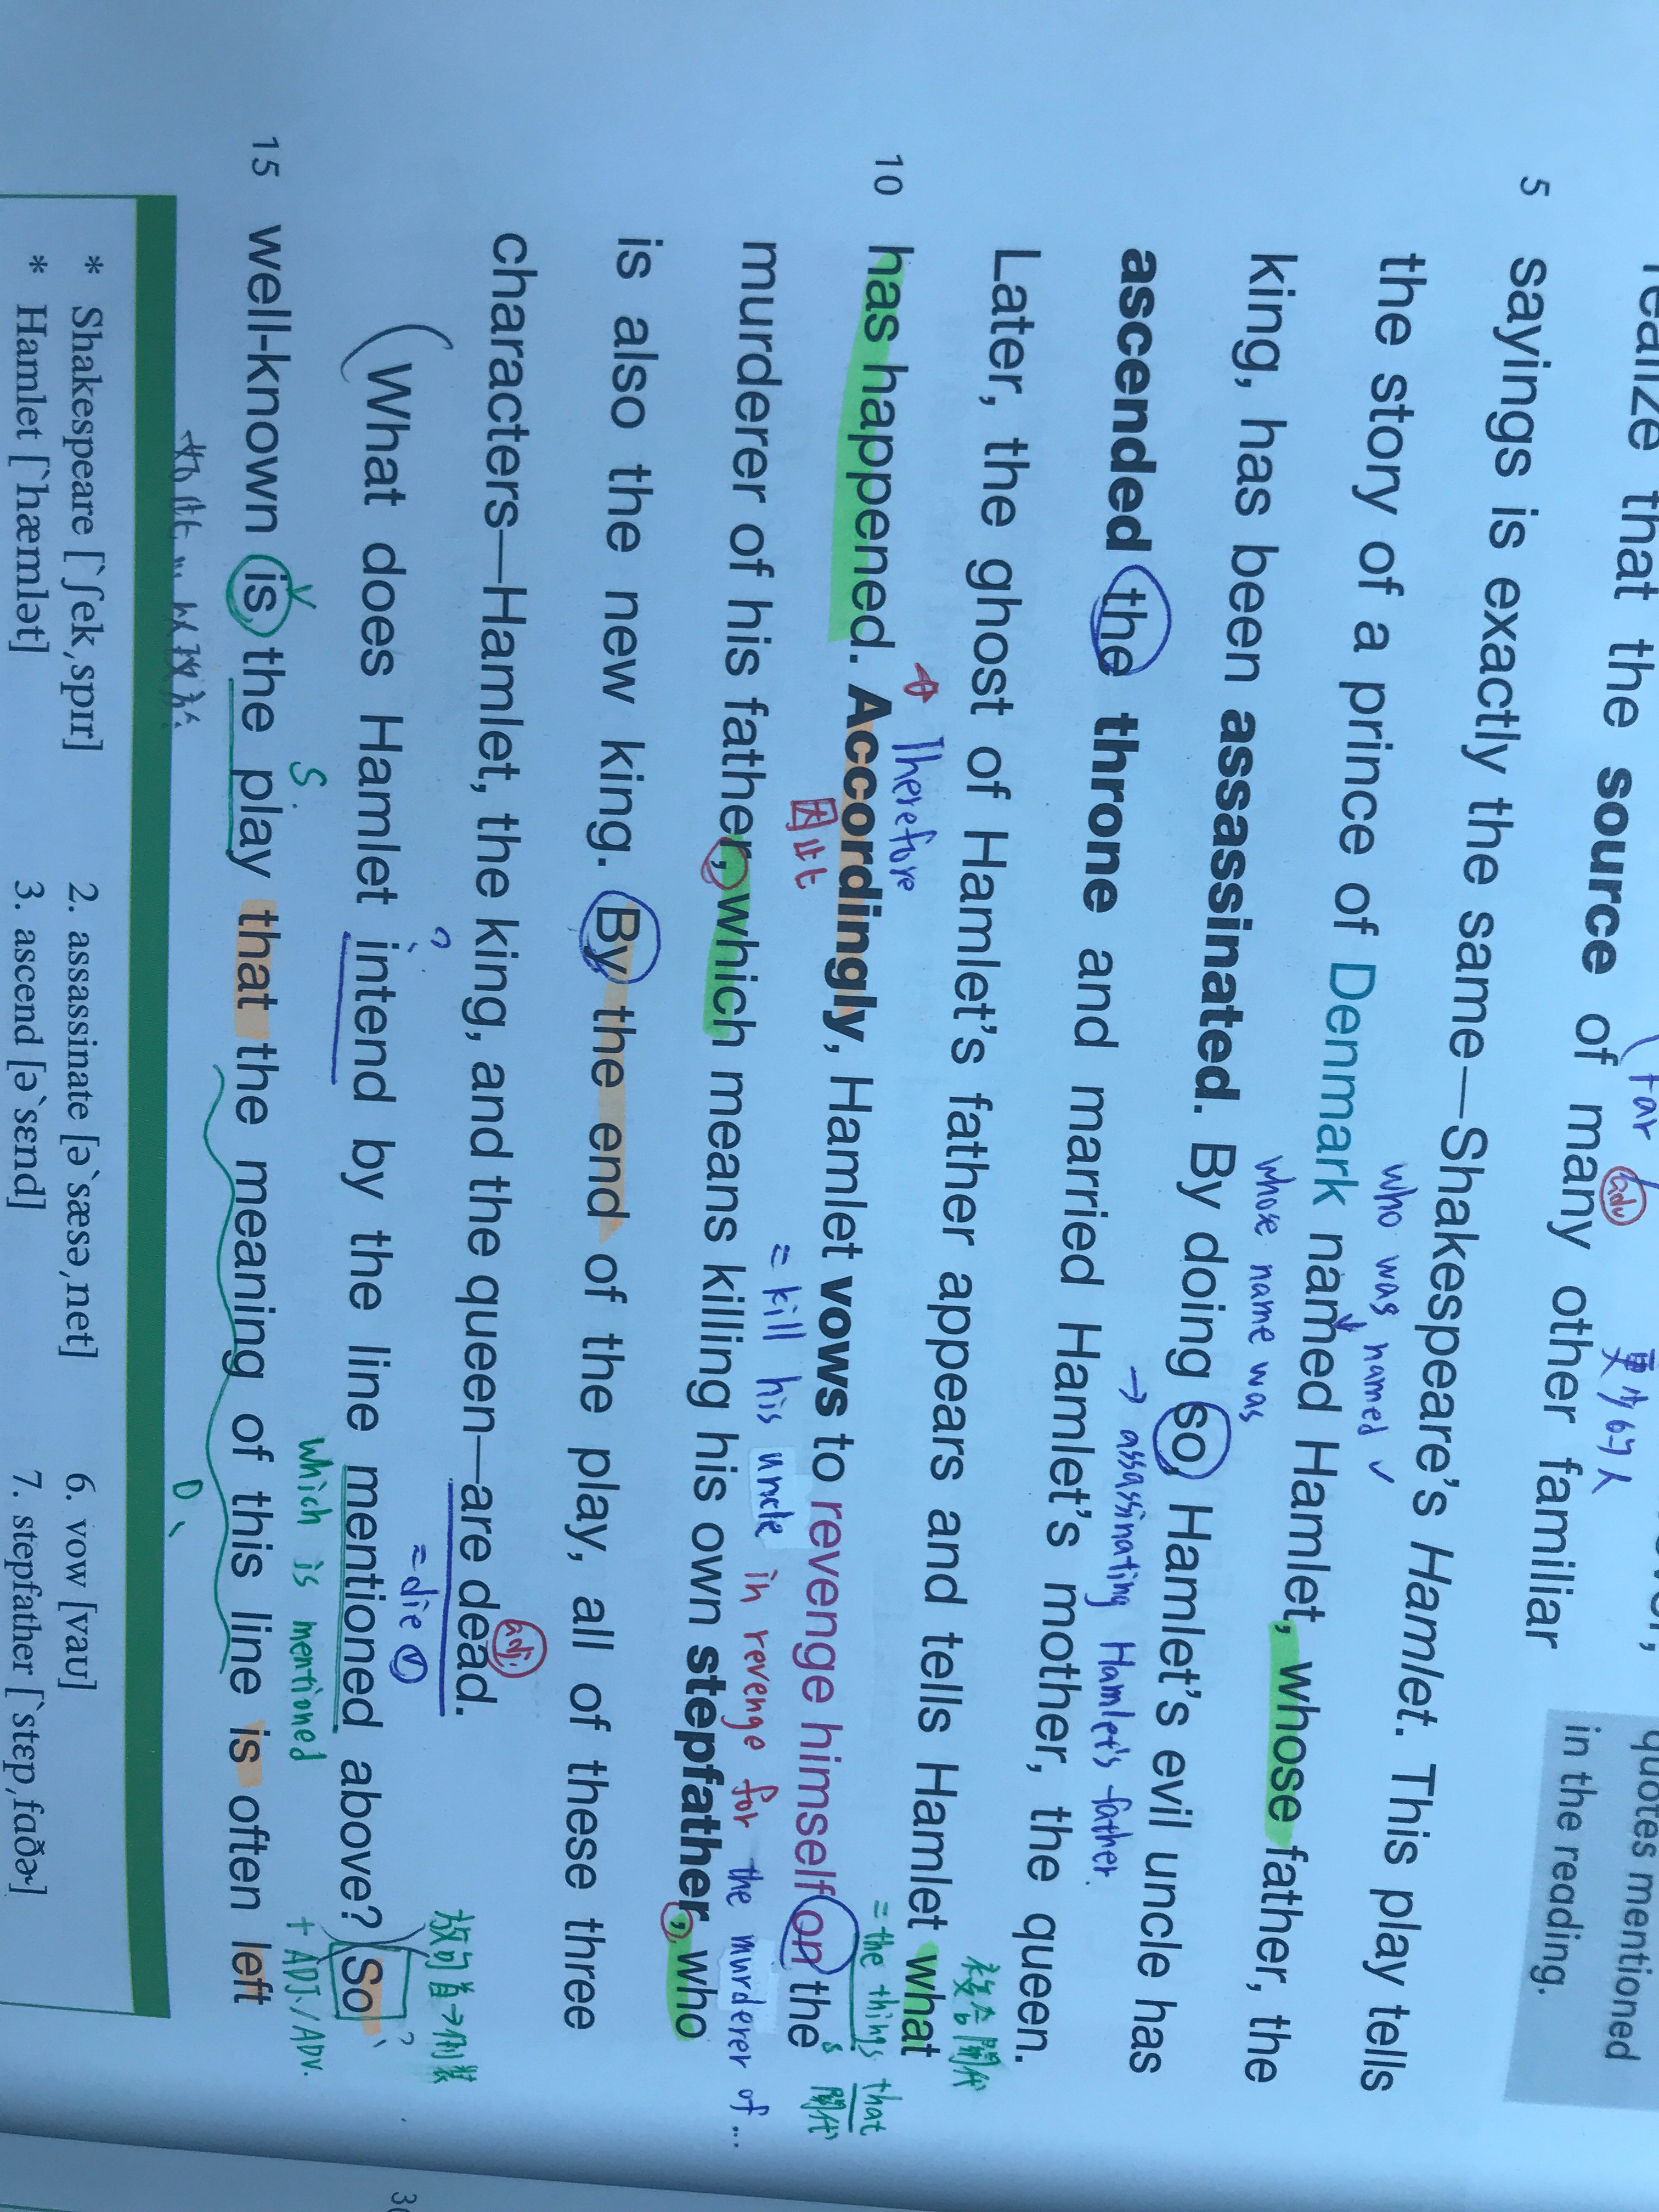 far
realize that the source of many other familiar
adv
更少的人
quotes mentioned
in the reading.
5 sayings is exactly the same—Shakespeare's Hamlet. This play tells
who was named ✓
the story of a prince of Denmark named Hamlet, whose father, the
whose name was
king, has been assassinated. By doing so, Hamlet's evil uncle has
→ assassinating Hamlet's father.
ascended the throne and married Hamlet's mother, the queen.
Later, the ghost of Hamlet's father appears and tells Hamlet what
複合關代
= the things that
S 關代
10 has happened. Accordingly, Hamlet vows to revenge himself on the
Therefore
因此
= kill his uncle in revenge for the murderer of...
murderer of his father, which means killing his own stepfather, who
is also the new king. By the end of the play, all of these three
characters—Hamlet, the king, and the queen—are dead.
adj.
= die v
放句首→倒裝
What does Hamlet intend by the line mentioned above? So
which is mentioned
+ ADJ./ADV.
V
S.
15 well-known is the play that the meaning of this line is often left
如此
D
* Shakespeare [ˋʃek,spɪr]
* Hamlet [ˋhæmlət]
2. assassinate [əˋsæsə,net]
3. ascend [əˋsɛnd]
6. vow [vaʊ]
7. stepfather [ˋstɛp,fɑðɚ]